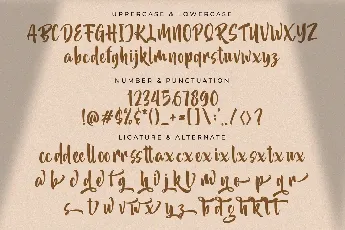 UPPERCASE & LOWERCASE
ABCDEFGHIJKLMNOPQRSTUVWXYZ
abcdefghijklmnopqrstuvwxyz
NUMBER & PUNCTUATION
1234567890
!@#$%^*()_-+=[]\:",./<>?
LIGATURE & ALTERNATE
ccddeelloorrssttaxcxexixlxsxtxux
a b c d e f g h i j k l m n o p q r
s t u v w x y z